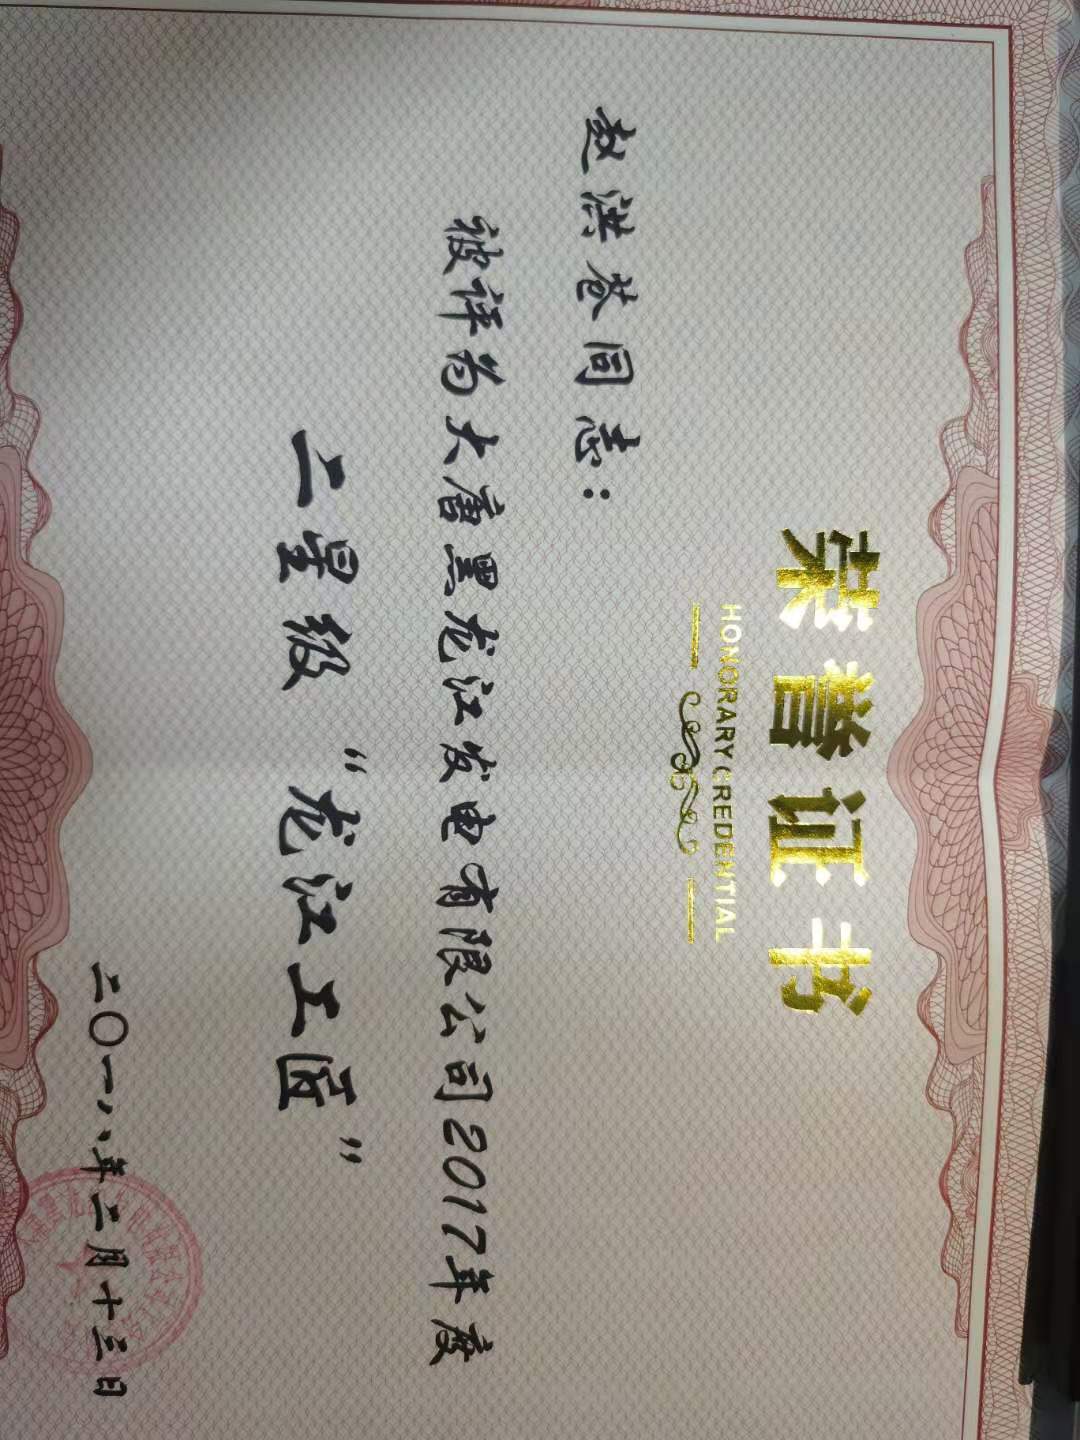 荣誉证书
HONORARY CREDENTIAL
赵洪苍同志：
被评为大唐黑龙江发电有限公司2017年度
二星级“龙江工匠”
二〇一八年二月十三日